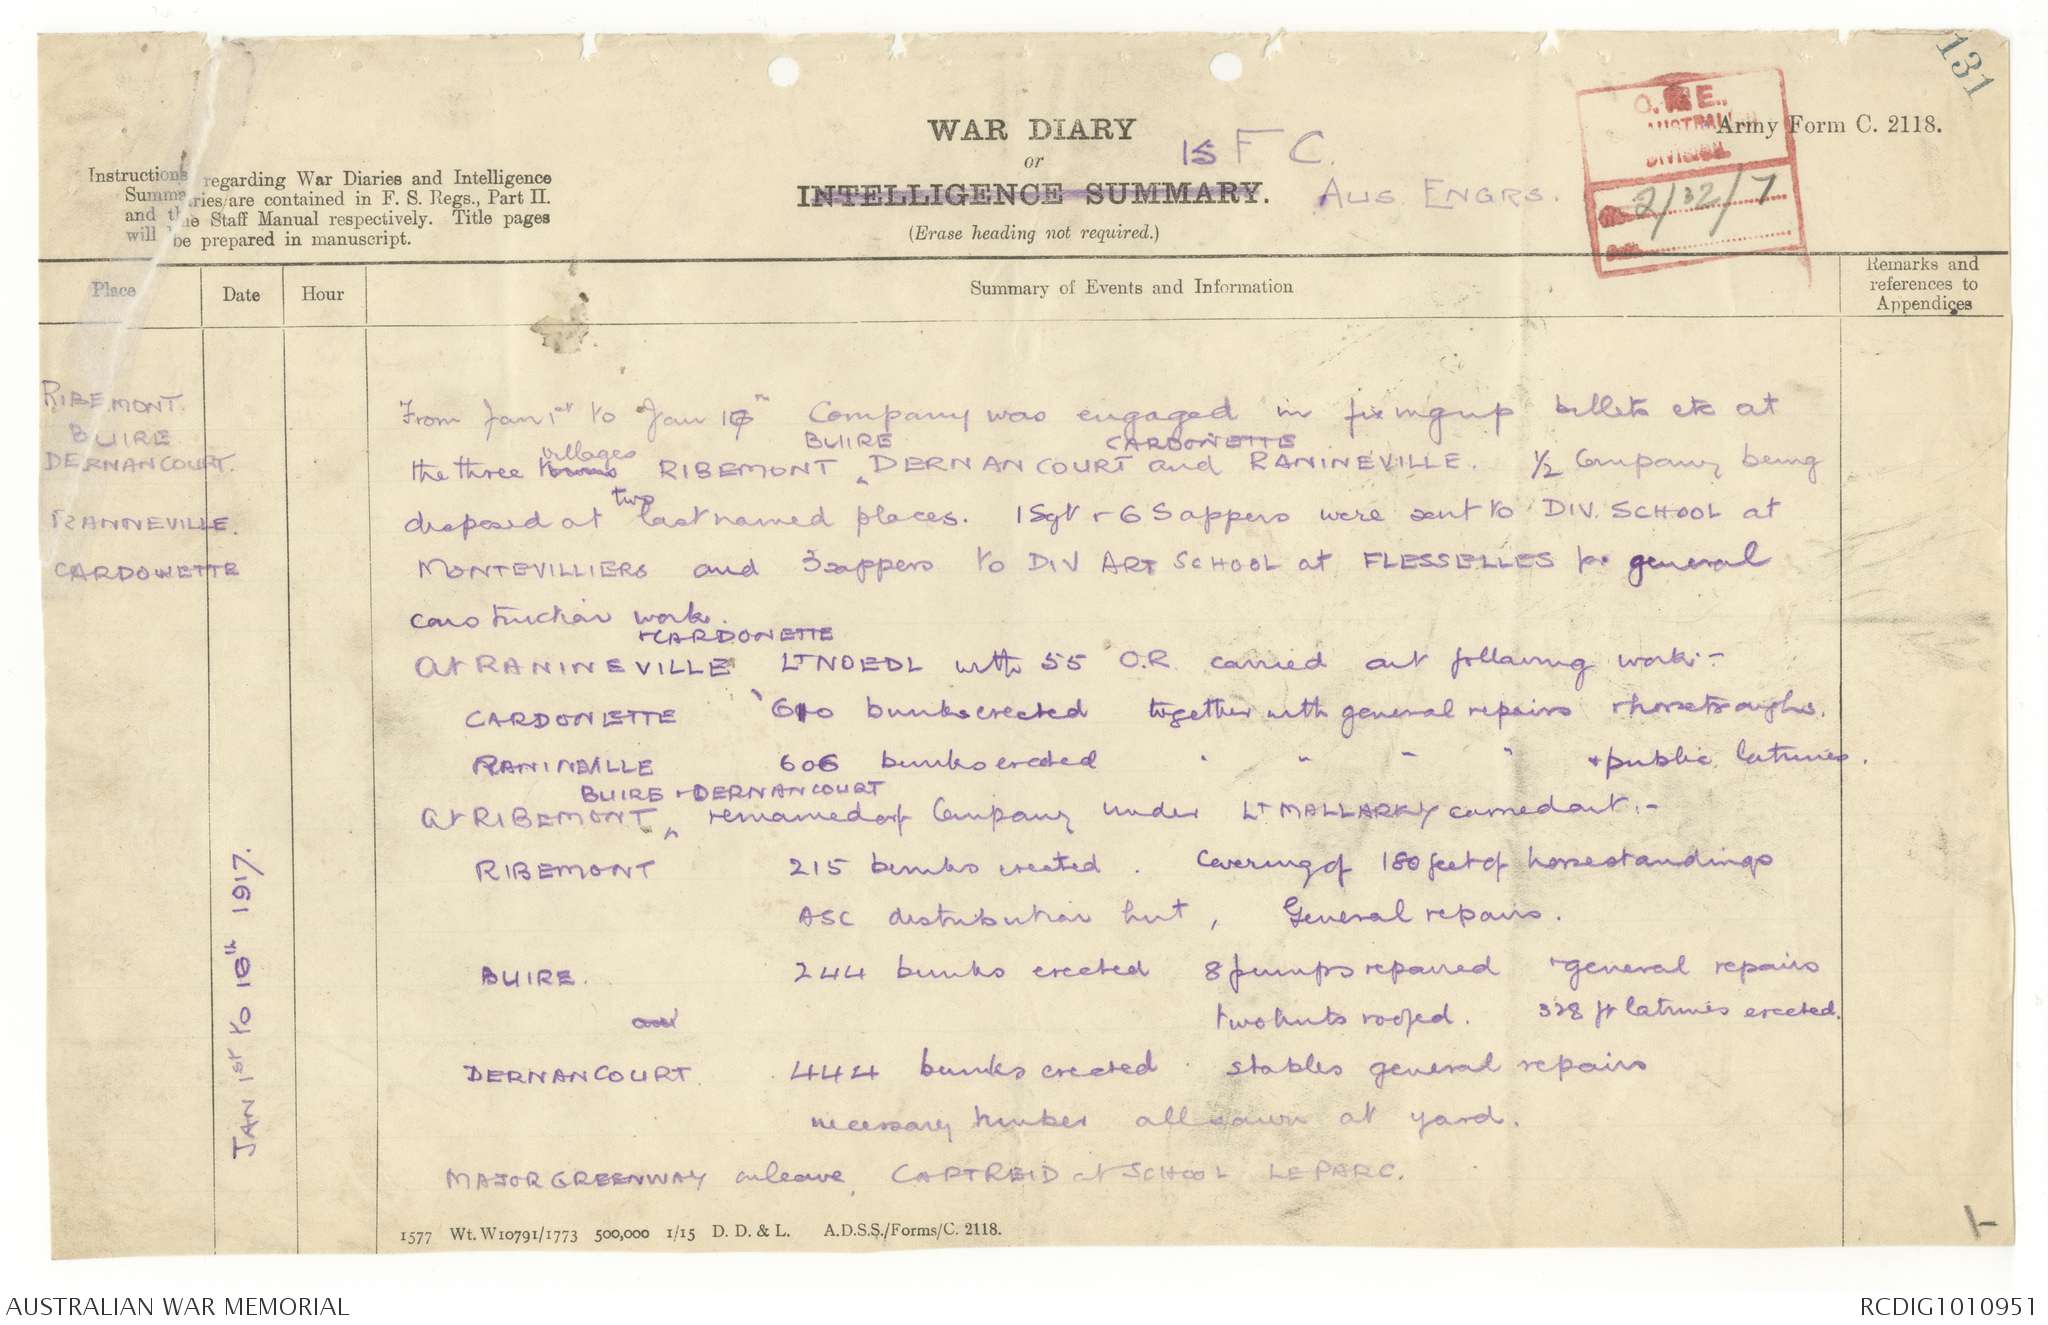 131
WAR DIARY
or
INTELLIGENCE SUMMARY.
(Erase heading not required.)
15 F C.
AUS ENGRS.
Army Form C. 2118.
C.R.E.,
AUSTRALIAN
DIVISION.
2/32/7
Date
Instructions regarding War Diaries and Intelligence
Summaries are contained in F. S. Regs., Part II.
and the Staff Manual respectively. Title pages
will be prepared in manuscript.
Place
Date
Hour
Summary of Events and Information
Remarks and
references to
Appendices
RIBEMONT.
BUIRE
DERNANCOURT.
RANNEVILLE.
CARDONETTE
JAN 1st to 16th 1917.
From Jan 1st to Jan 16th Company was engaged in fixing up billets etc at
villages BUIRE CARDONETTE
the three towns RIBEMONT DERNANCOURT and RANINEVILLE. 1/2 Company being
two
disposed at last named places. 1 Sgt + 6 Sappers were sent to DIV. SCHOOL at
MONTEVILLIERS and 3 sappers to DIV ART SCHOOL at FLESSELLES for general
construction work.
+ CARDONETTE
At RANINEVILLE LT NOEDL with 55 O.R. carried out following work:-
CARDONETTE 610 bunks erected together with general repairs + horsetroughs.
RANINEVILLE 606 bunks erected " " " " + public latrines.
BUIRE + DERNANCOURT
At RIBEMONT remainder of Company under LT MALLARKY carried out:-
RIBEMONT 215 bunks erected. Covering of 180 feet of horsestandings
ASC distribution hut, General repairs.
BUIRE. 244 bunks erected 8 pumps repaired + general repairs
and two huts roofed. 328 ft latrines erected.
DERNANCOURT. 444 bunks erected. stables general repairs
necessary timber all sawn at yard.
MAJOR GREENWAY on leave, CAPT REID at SCHOOL LE PARC.
1577 Wt. W10791/1773 500,000 1/15 D. D. & L. A.D.S.S./Forms/C. 2118.
AUSTRALIAN WAR MEMORIAL
RCDIG1010951